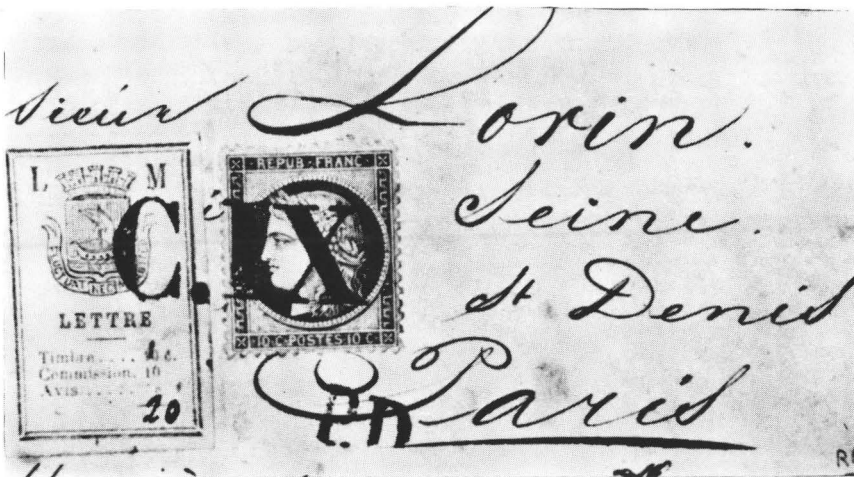 Sieur Lorin.
Seine.
St Denis
Paris
L M
LETTRE
Timbre.... c.
Commission. 10
Avis........
20
REPUB. FRANC.
10 C. POSTES 10 C.
C.IX